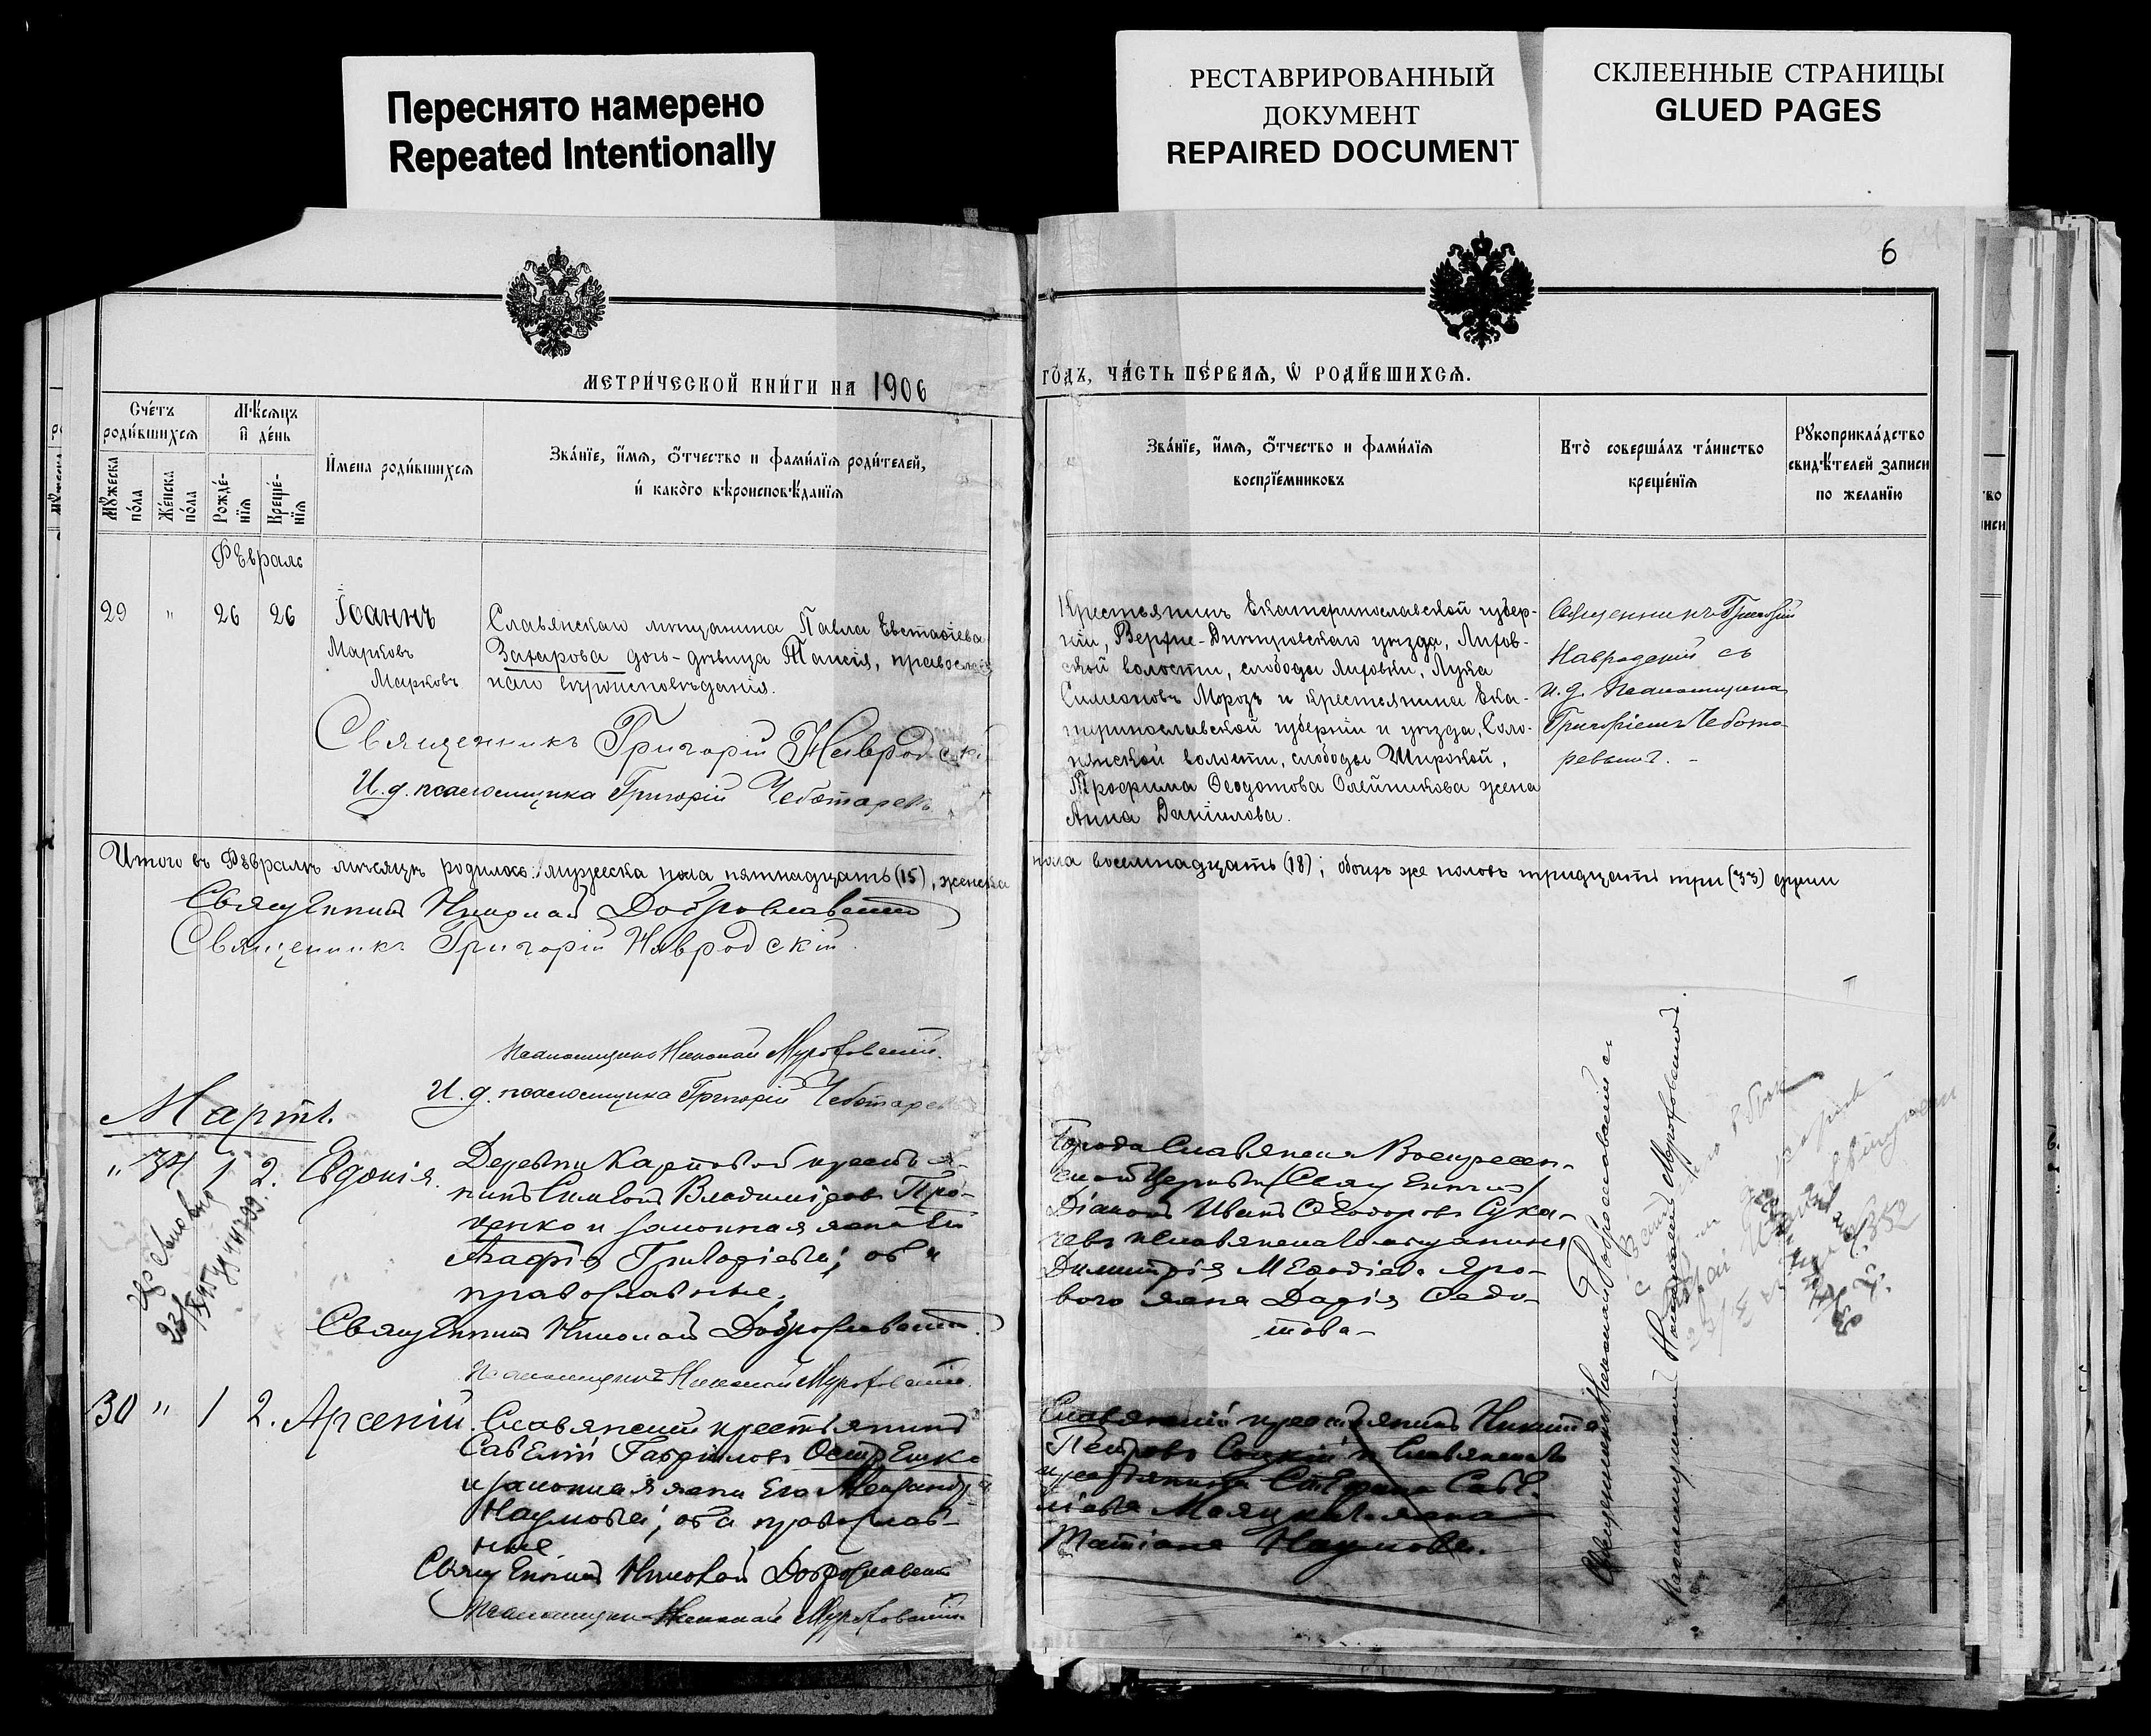 Переснято намерено
Repeated Intentionally
РЕСТАВРИРОВАННЫЙ
ДОКУМЕНТ
REPAIRED DOCUMENT
СКЛЕЕННЫЕ СТРАНИЦЫ
GLUED PAGES
6
МЕТРИ́ЧЕСКОЙ КНИ́ГИ НА 1906
ГО́ДЪ, ЧА́СТЬ ПЕ́РВАѦ, Ѡ҆ РОДИ́ВШИХСѦ.
Сче́тъ
роди́вшихсѧ
Мѣ́сѧцъ
и҆ де́нь
И҆мена роди́вшихсѧ
Зва́нїе, и҆́мѧ, ѻ҆́тчество и фами́лїѧ роди́телей,
и҆ како́го вѣроисповѣ́данїѧ
Мꙋ́жеска
по́ла
Же́нска
по́ла
Рожде́-
нїѧ
Креще́-
нїѧ
Зва́нїе, и҆́мѧ, ѻ҆́тчество и фами́лїѧ
воспрїе́мниковъ
Кто̀ соверша́лъ та́инство
креще́нїѧ
Рꙋкоприкла́дство
свидѣ́телей записи
по жела́нїю
Февраль
29 " 26 26 Іоаннъ
Марковъ
Марковъ
Славянскаго мѣщанина Павла Евстафіева
Захарова дочь-дѣвица Таисія, православ
наго вѣроисповѣданія.
Священникъ Григорій Навродскій
И. д. псаломщика Григорій Чеботаревъ
Крестьянинъ Екатеринославской губер-
ніи, Верхне-Днѣпровскаго уѣзда, Лихов-
ской волости, слободы Лиховки, Лука
Симеоновъ Морозъ и крестьянина Ека-
теринославской губерніи и уѣзда, Соло-
нянской волости, слободы Широкой,
Трофима Ѳеодотова Олейникова жена
Анна Даніилова.
Священникъ Григорій
Навродскій съ
и. д. псаломщика
Григоріемъ Чебота-
ревымъ. -
Итого въ Февралѣ мѣсяцѣ родилось: мужеска пола пятнадцать (15), женска
пола восемнадцать (18); обоихъ же половъ тридцать три (33) души
Священникъ Николай Доброславскій
Священникъ Григорій Навродскій
Псаломщикъ Николай
И. д. псаломщика Григорій Чеботаревъ
Мартъ.
" 34 1 2. Евдокія.
Деревни Карповой крестья-
нинъ Владиміровъ Про-
ценко и законная жена его
Агафія Григоріева; оба
православные.
Священникъ Николай Доброславскій
Псаломщикъ Николай
Города Славянска Воскресен-
ской Церкви
Діаконъ Иванъ Ѳеодоровъ Сука-
чевъ и Славянскаго мѣщанина
Димитрія Меѳодіева Яро-
вого жена Дарія Федо-
това -
30 " 1 2. Арсеній.
Славянскій крестьянинъ
Савелій Гавриловъ Остр
и законная жена его Александра
Наумова; оба православ-
ные
Священникъ Николай Доброславскій
Псаломщикъ Николай
Славянскій крестьянинъ Никита
Петровъ и Славянскаго
крестьянина Стефана Саве-
ліева жена
Татіана Наумова.
Священникъ Николай Доброславскій съ
псаломщикомъ Николаемъ